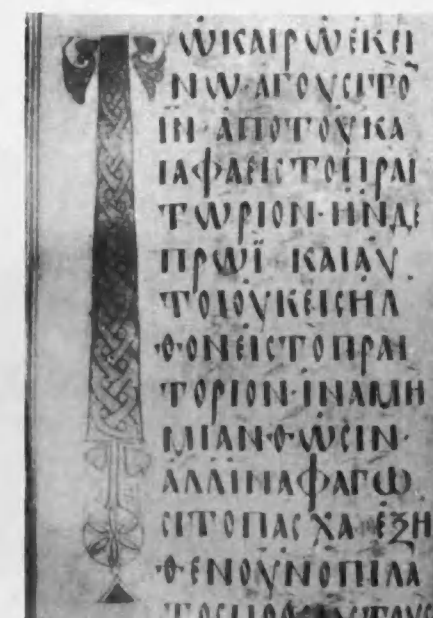 ΤΩΚΑΙΡΩΕΚΕΙ
ΝΩ·ΑΓΟΥCΙΤΟ̅
ΙΝ·ΑΠΟΤΟΥΚΑ
ΙΑΦΑΕΙCΤΟΠΡΑΙ
ΤΩΡΙΟΝ·ΗΝΔΕ
ΠΡΩΪ ΚΑΙΑΥ
ΤΟΙΟΥΚΕΙCΗΛ
ΘΟΝΕΙCΤΟΠΡΑΙ
ΤΟΡΙΟΝ·ΙΝΑΜΗ
ΜΙΑΝΘΩCΙΝ·
ΑΛΛΙΝΑΦΑΓΩ
CΙΤΟΠΑCΧΑ ΕΞΗ
ΘΕΝΟΥΝΟΠΙΛΑ